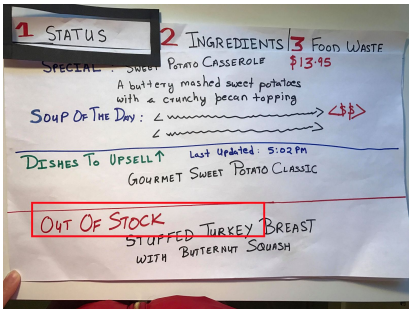 1 STATUS
2 INGREDIENTS
3 FOOD WASTE
SPECIAL: SWEET POTATO CASSEROLE $13.95
A buttery mashed sweet potatoes
with a crunchy pecan topping
SOUP OF THE DAY: <$$>
DISHES TO UPSELL↑ Last Updated: 5:02PM
GOURMET SWEET POTATO CLASSIC
OUT OF STOCK
STUFFED TURKEY BREAST
WITH BUTTERNUT SQUASH